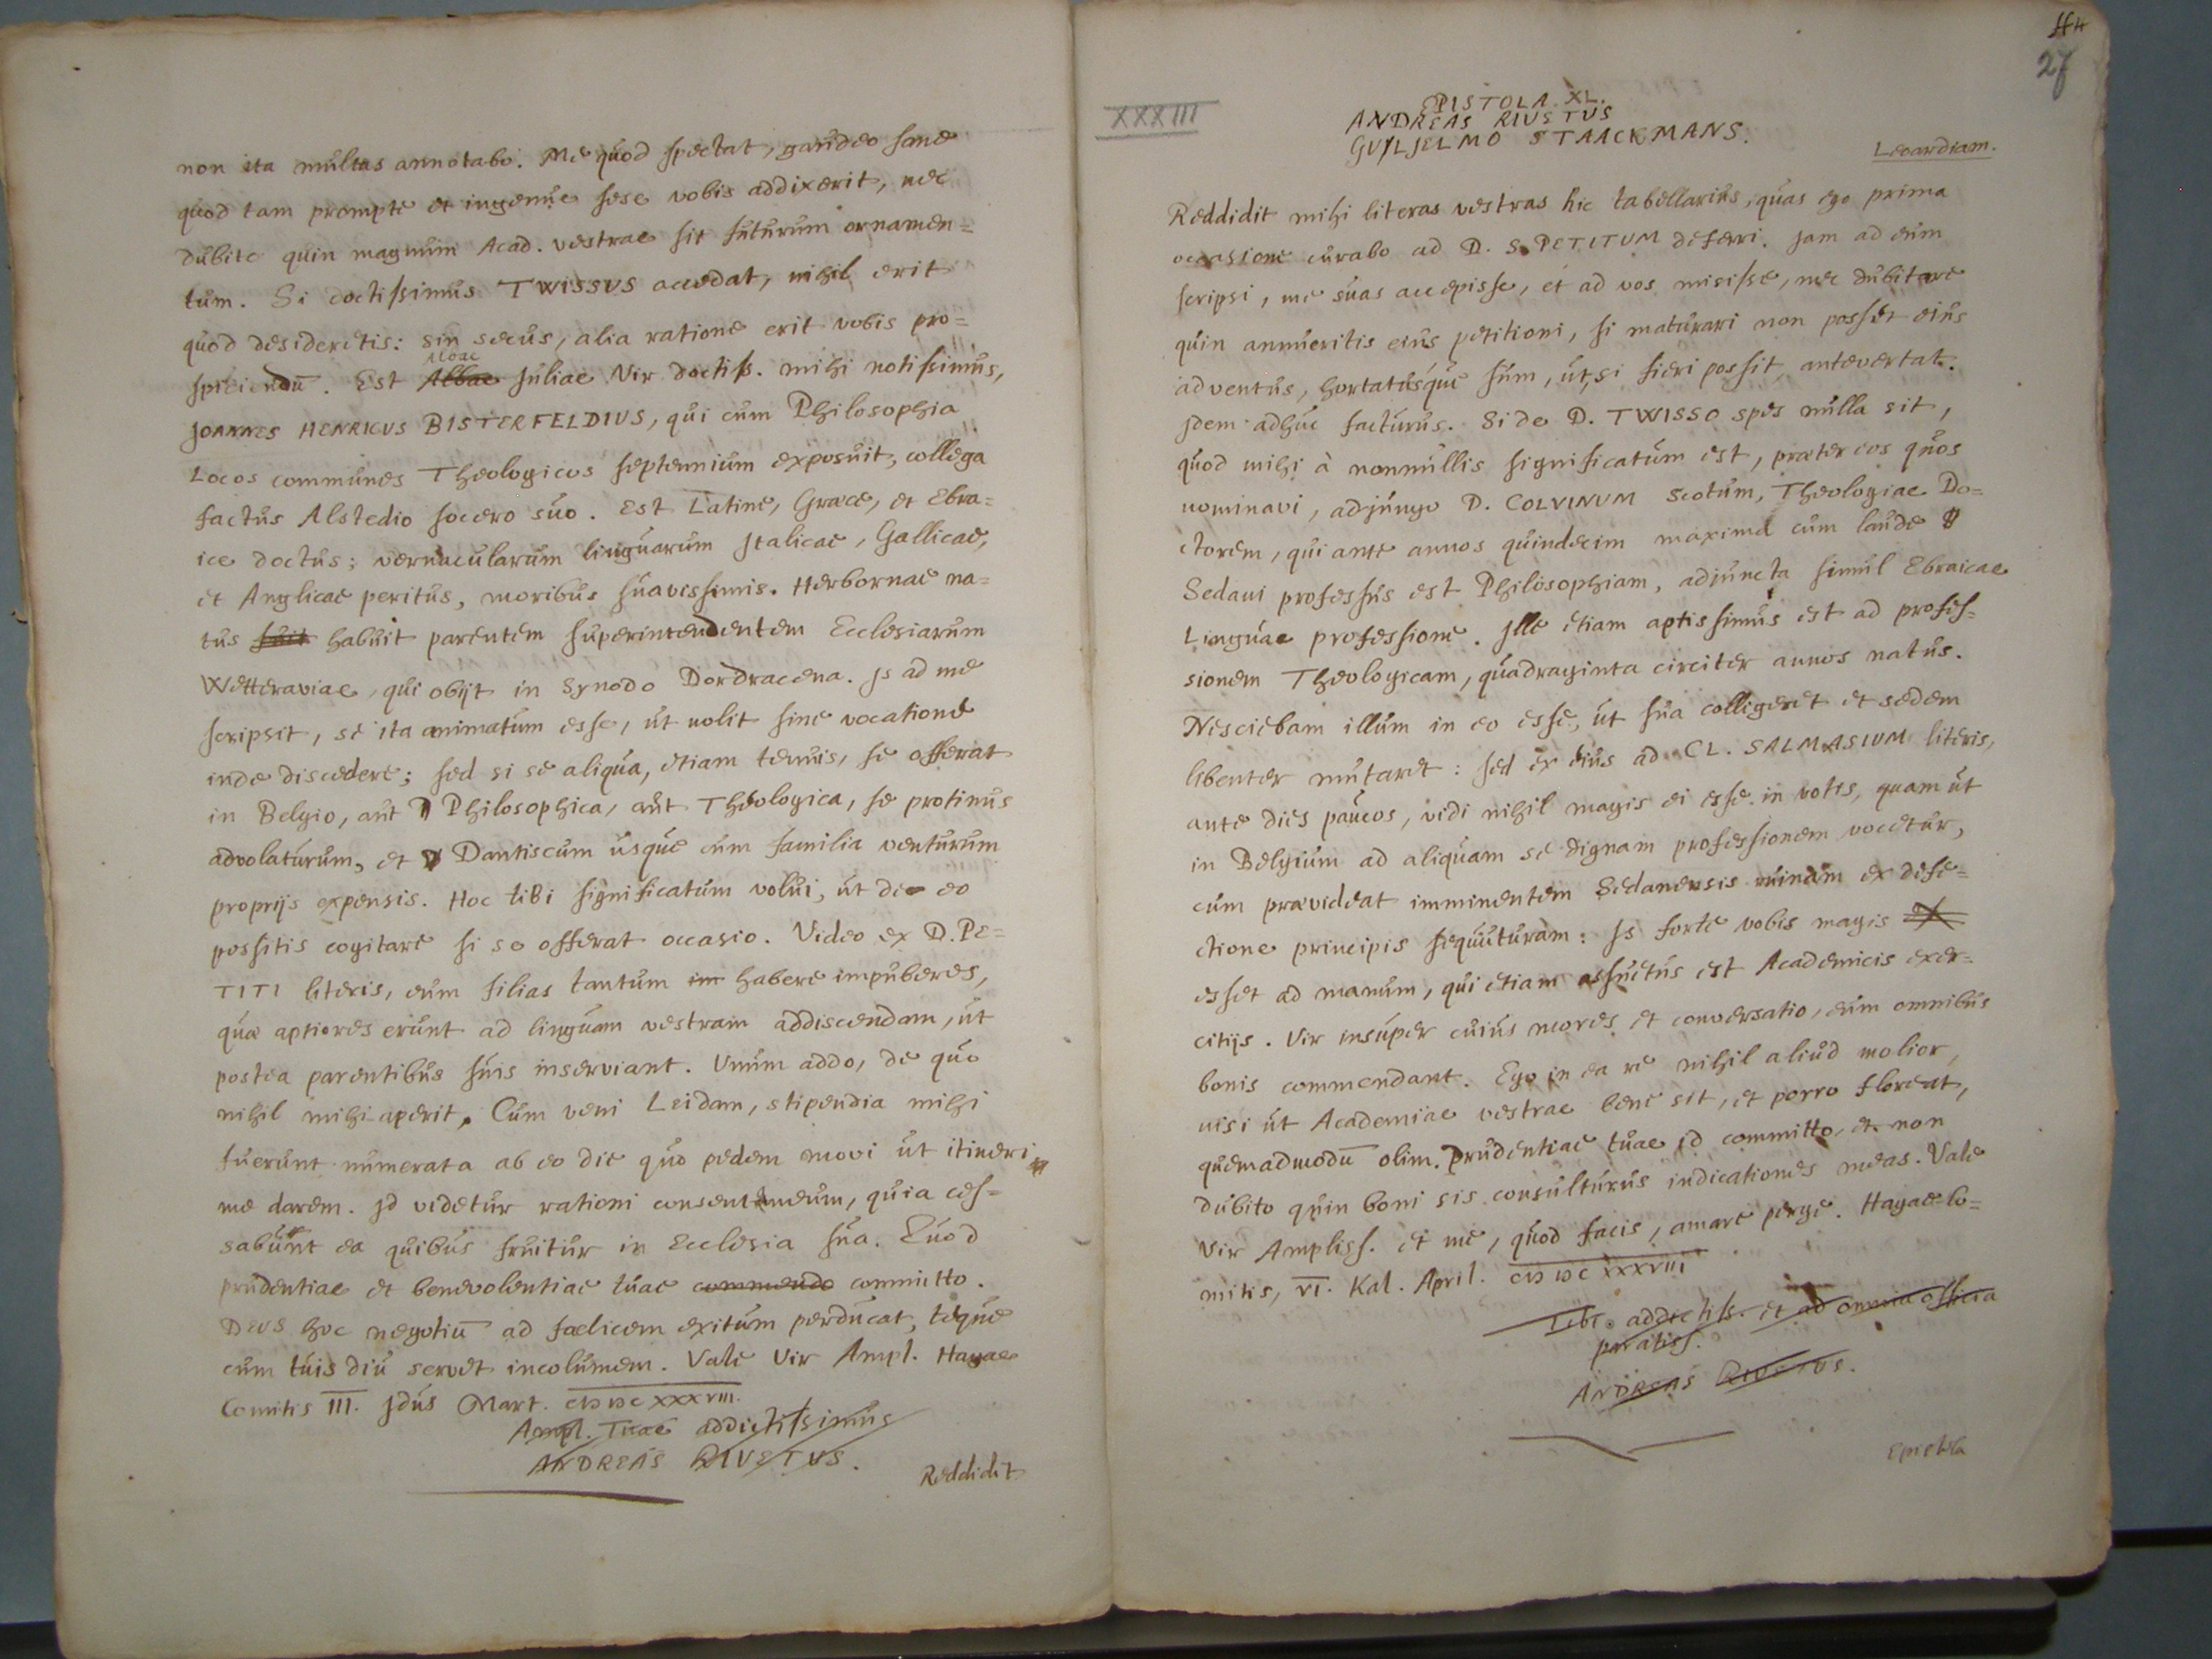 non ita multas annotabo. Me quod spectat, gaudeo sane
quod tam prompte et ingenue sese vobis addixerit, nec
dubito quin magnum Acad. vestrae sit futurum ornamen=
tum. Si doctissimus TWISSVS accedat, nihil erit
quod desideretis: sin secus, alia ratione erit vobis pro=
spiciendū. Est Albae Albae Juliae Vir doctiss. mihi notissimus,
JOANNES HENRICVS BISTERFELDIUS, qui cum Philosophia
Locos communes Theologicos septennium exposuit, collega
factus Alstedio socero suo. Est Latine, Graece, et Ebra=
ice doctus; vernacularum linguarum Italicae, Gallicae,
et Anglicae peritus, moribus suavissimis. Herbornae na=
tus fuit habuit parentem superintendentem Ecclesiarum
Wetteraviae, qui obijt in Synodo Dordracena. Is ad me
scripsit, se ita animatum esse, ut nolit sine vocatione
inde discedere; sed si se aliqua, etiam tenuis, se offerat
in Belgio, aut Philosophica, aut Theologica, se protinus
advolaturum, et Dantiscum usque cum familia venturum
proprijs expensis. Hoc tibi significatum volui, ut de eo
possitis cogitare si se offerat occasio. Video ex D. PE=
TITI literis, eum filias tantum im habere impuberes,
quae aptiores erunt ad linguam vestram addiscendam, ut
postea parentibus suis inserviant. Unum addo, de quo
nihil mihi aperit. Cum veni Leidam, stipendia mihi
fuerunt numerata ab eo die quo pedem movi ut itineri
me darem. Id videtur rationi consentaneum, quia ces=
sabunt ea quibus fruitur in Ecclesia sua. Quod
prudentiae et benevolentiae tuae commendo committo.
DEUS hoc negotiū ad foelicem exitum perducat, teque
cum tuis diu servet incolumem. Vale Vir Ampl. Hagae
Comitis III. Idus Mart. CIƆ IƆC XXXVIII.
Ampl. Tuae addictissimus
ANDREAS RIVETUS.
Reddidit
44
27
XXXIII
EPISTOLA XL.
ANDREAS RIVETUS
GUILJELMO STAACKMANS.
Leoardiam.
Reddidit mihi literas vestras hic tabellarius, quas ego prima
occasione curabo ad D. S. PETITUM deferri. Jam ad eum
scripsi, me suas accepisse, et ad vos misisse, nec dubitare
quin annueritis eius petitioni, si maturari non posset eius
adventus, hortatusque sum, ut, si fieri possit, antevertat.
Idem adhuc facturus. Si de D. TWISSO spes nulla sit,
quod mihi à nonnullis significatum est, praeter eos quos
nominavi, adjungo D. COLVINUM Scotum, Theologiae Do=
ctorem, qui ante annos quindecim maxima cum laude
Sedani professus est Philosophiam, adjuncta simul Ebraicae
Linguae professione. Ille etiam aptissimus est ad profes=
sionem Theologicam, quadraginta circiter annos natus.
Nesciebam illum in eo esse, ut sua colligeret et sedem
libenter mutaret: sed ex eius ad CL. SALMASIUM literis,
ante dies paucos, vidi nihil magis ei esse in votis, quam ut
in Belgium ad aliquam se dignam professionem vocetur,
cum praevideat imminentem Sedanensis ruinam ex defe=
ctione principis sequuturam: Is forte vobis magis
esset ad manum, qui etiam assuetus est Academicis exer=
citijs. Vir insuper cuius mores et conversatio, eum omnibus
bonis commendant. Ego in ea re nihil aliud molior,
nisi ut Academiae vestrae bene sit, et porro floreat,
quemadmodū olim. Prudentiae tuae id committo, et non
dubito quin boni sis consulturus indicationes meas. Vale
Vir Ampliss. et me, quod facis, amare perge. Hagae-Co=
mitis, VI. Kal. April. CIƆ IƆC XXXVIII
Tibi addictiss. et ad omnia officia
paratiss.
ANDREAS RIVETUS.
Epistola